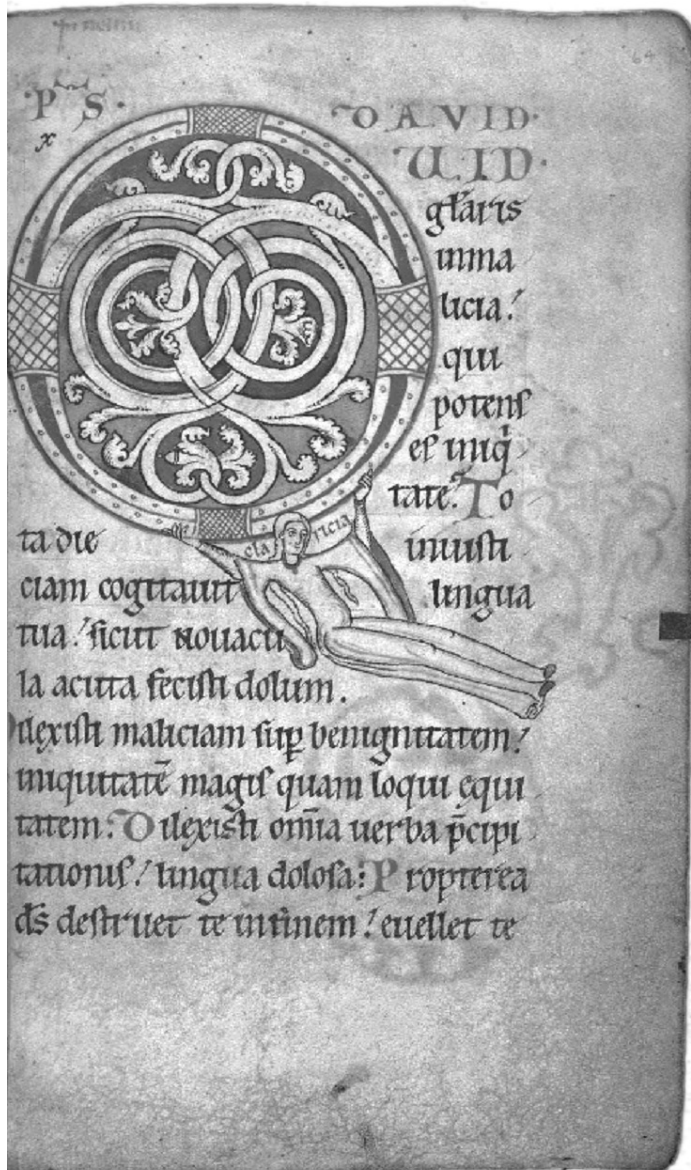 ·P S· DAVID·
x
UID·
gl̄aris
inma
licia!
qui
potens
es iniq
tate. To
ta die iniusti
cla ricia
ciam cogitauit lingua
tua! sicut nouacu
la acuta fecisti dolum.
Dilexisti maliciam sup̱ benignitatem!
iniquitatē magis quam loqui ęqui
tatem: Dilexisti om̄ia uerba p̄cipi
tationis! lingua dolosa: Propterea
d̄s destruet te infinem! euellet te